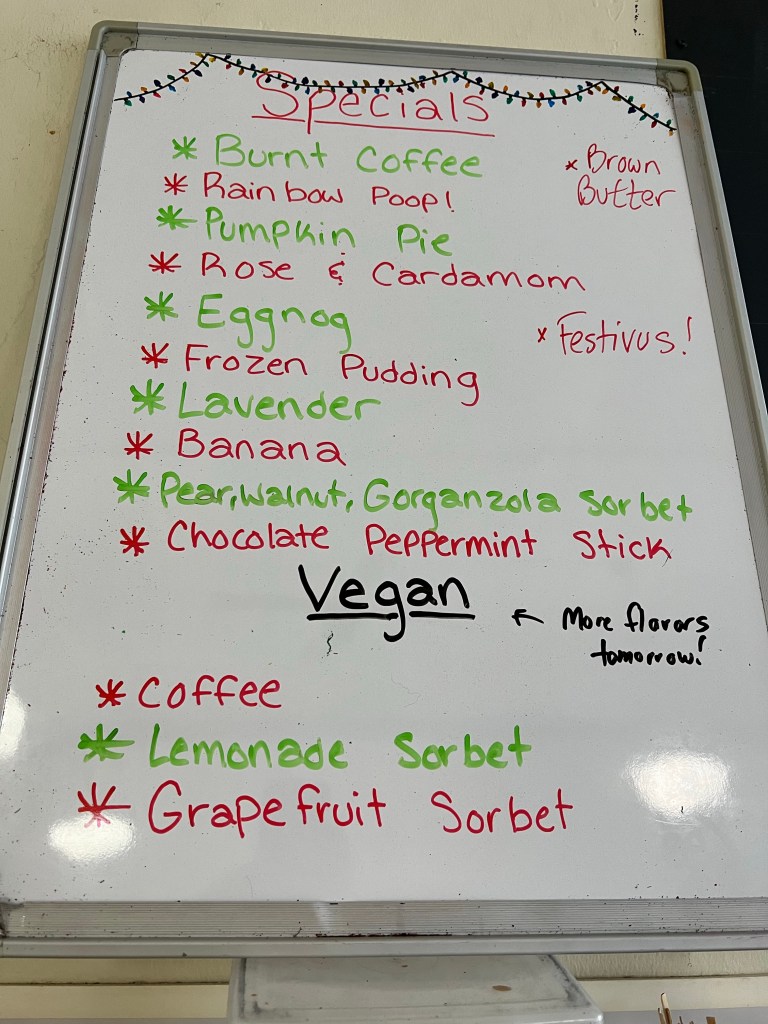 Specials
* Burnt Coffee
* Brown
Butter
* Rainbow Poop!
* Pumpkin Pie
* Rose & Cardamom
* Eggnog
* Festivus!
* Frozen Pudding
* Lavender
* Banana
* Pear, Walnut, Gorganzola Sorbet
* Chocolate Peppermint Stick
Vegan
← More flavors
tomorrow!
* Coffee
* Lemonade Sorbet
* Grapefruit Sorbet